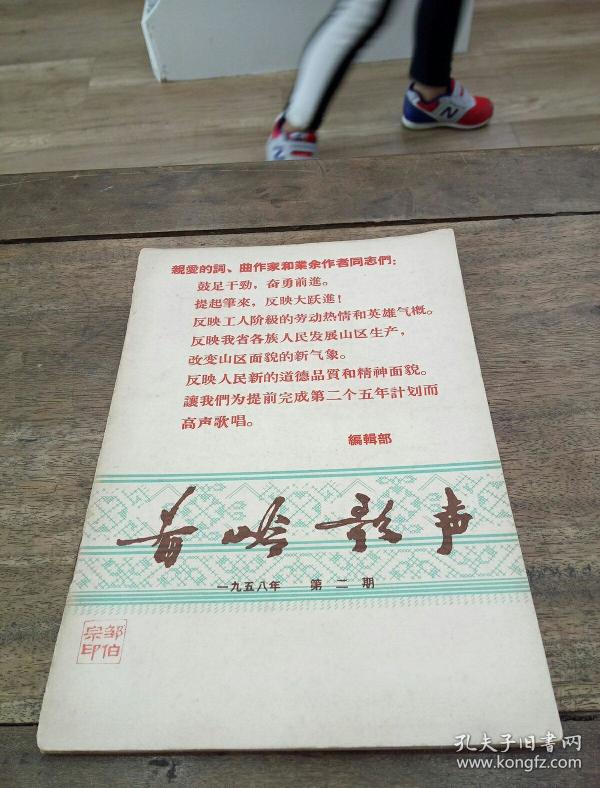 親爱的詞、曲作家和業余作者同志們：
鼓足干勁，奋勇前進。
提起筆來，反映大跃進！
反映工人阶級的劳动热情和英雄气概。
反映我省各族人民发展山区生产，
改变山区面貌的新气象。
反映人民新的道德品質和精神面貌。
讓我們为提前完成第二个五年計划而
高声歌唱。
編輯部
苗岭歌声
一九五八年 第二期
邹伯
宗印
N
孔夫子旧書网
www.kongfz.com